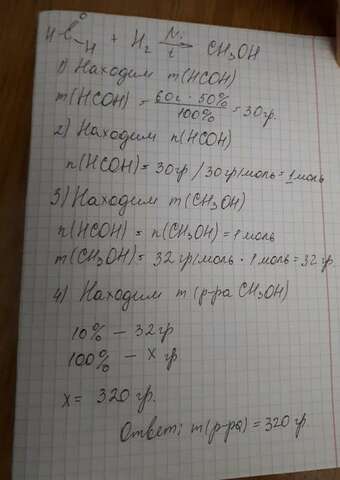 H C O H + H₂ Ni t → CH₃OH
1) Находим m(HCOH)
m(HCOH) = 60г · 50% / 100% = 30гр.
2) Находим n(HCOH)
n(HCOH) = 30гр / 30гр/моль = 1моль
3) Находим m(CH₃OH)
n(HCOH) = n(CH₃OH) = 1моль
m(CH₃OH) = 32гр/моль · 1моль = 32гр.
4) Находим m(р-ра CH₃OH)
10% — 32гр
100% — x гр
x = 320гр.
Ответ: m(р-ра) = 320гр